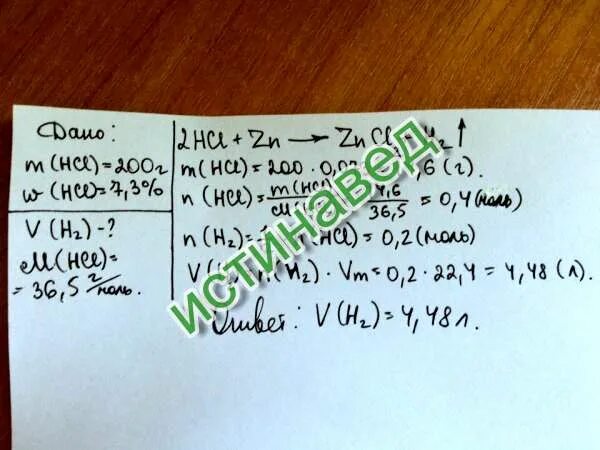 Дано:
m(HCl)=200г
w(HCl)=7,3%
V(H₂)-?
M(HCl)=
=36,5 г/моль.
2HCl + Zn → ZnCl H₂↑
m(HCl)=200·0,0 ,6(г).
n(HCl)= m(HCl) / M ,6 / 36,5 = 0,4(моль)
n(H₂)= (HCl)=0,2(моль)
V (H₂)·Vm=0,2·22,4=4,48(л).
Ответ: V(H₂)=4,48л.
ИСТИНАВЕД